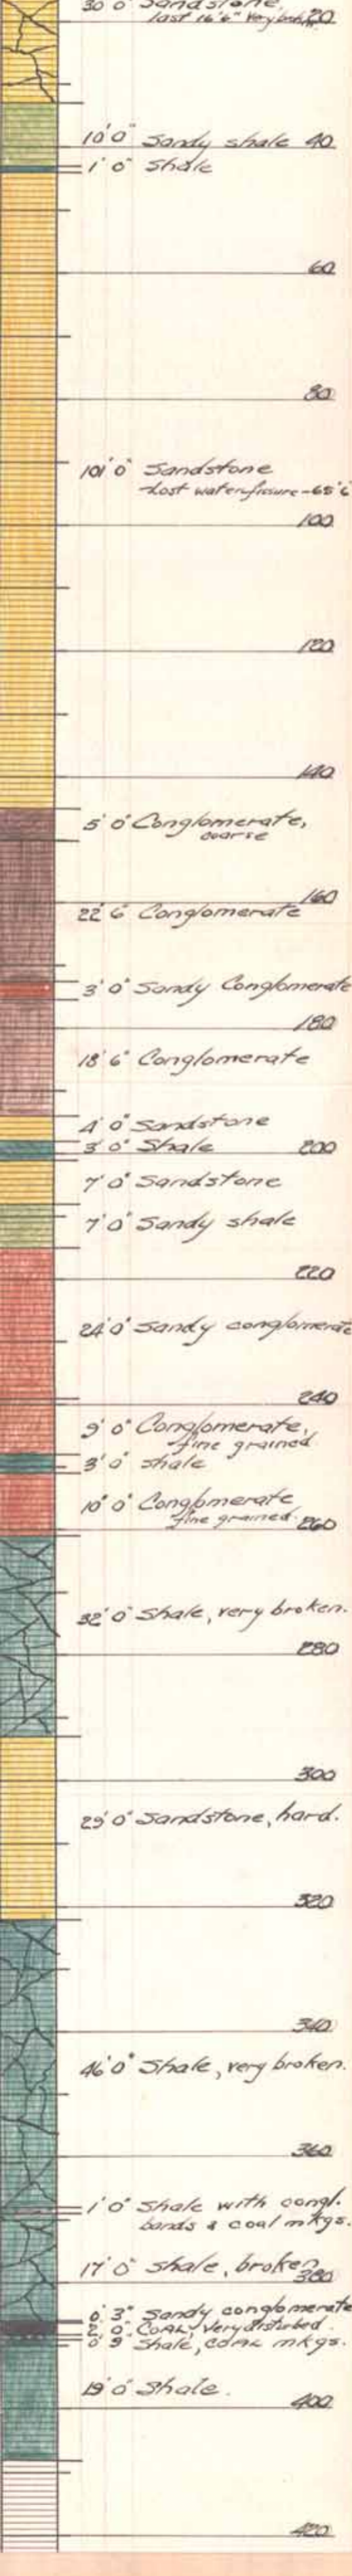 30' 0" Sandstone,
last 16' 6" Very brkn. 20
10' 0" Sandy shale 40
1' 0" Shale
60
80
101' 0" Sandstone
Lost water fissure - 65' 6
100
120
140
5' 0" Conglomerate,
coarse
160
22' 6" Conglomerate
3' 0" Sandy Conglomerate
180
18' 6" Conglomerate
4' 0" Sandstone
3' 0" Shale 200
7' 0" Sandstone
7' 0" Sandy shale
220
24' 0" Sandy conglomerate
240
9' 0" Conglomerate,
fine grained
3' 0" shale
10' 0" Conglomerate
fine grained. 260
32' 0" Shale, very broken.
280
300
29' 0" Sandstone, hard.
320
340
46' 0" Shale, very broken.
360
1' 0" Shale with congl.
bands & coal mkgs.
17' 0" Shale, broken
380
0' 3" Sandy conglomerate
2' 0" COAL, Very disturbed.
0' 9" Shale, COAL mkgs.
19' 0" Shale.
400
420